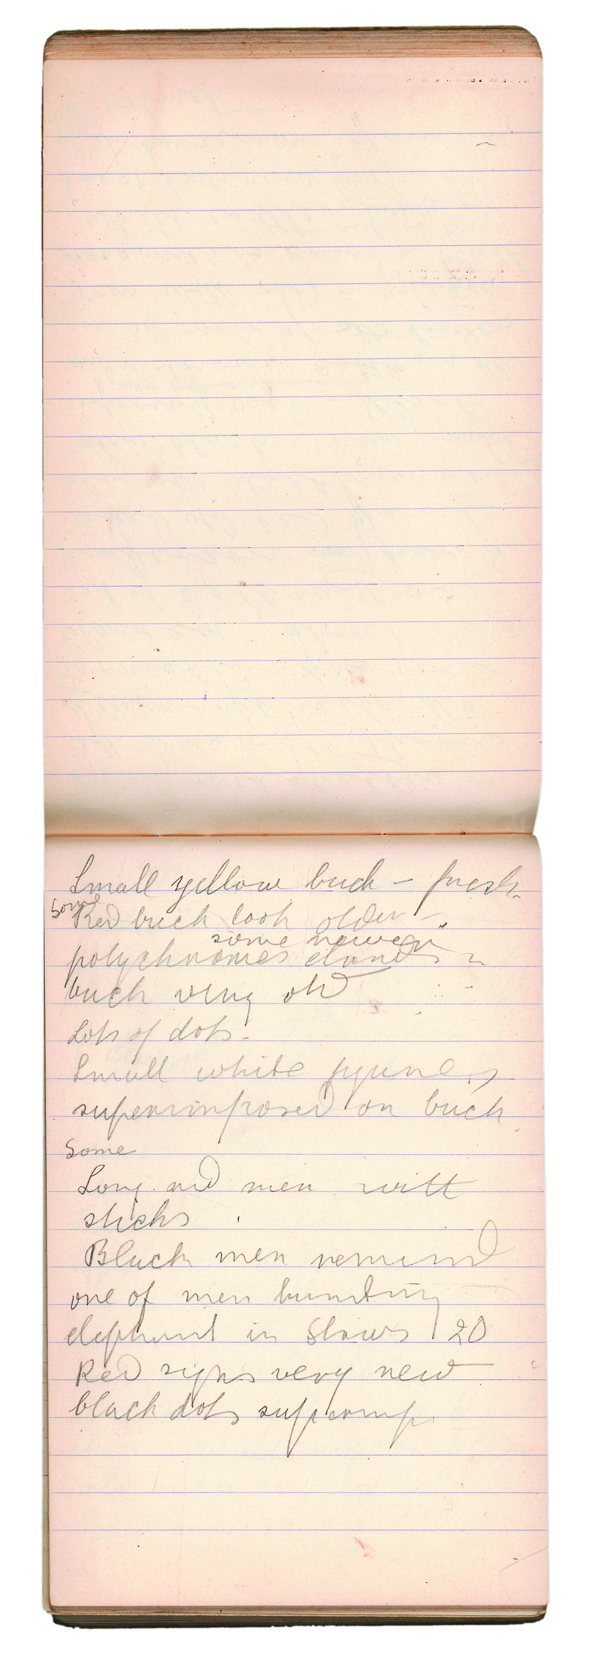 Small yellow buck - fresh.
Some
Red buck look older -
some newer
polychromes elands
buck very old
Lots of dots.
Small white figures
superimposed on buck
Some
Long red men with
sticks.
Black men remind
one of men hunting
elephant in Slaws 20
Red signs very new
black dots superimp.